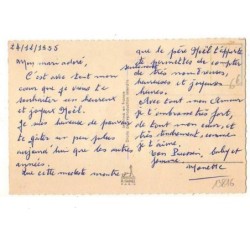 24/12/1955
Mon mari adoré,
C'est avec tout mon
cœur que je viens te
souhaiter un heureux
et joyeux Noël.
Je suis heureuse de pouvoir
te gâter un peu plus
aujourd'hui que les autres
années.
Que cette modeste montre
que le père Noël t'apporte
te permettes de compter
de très nombreuses,
heureuses et joyeuses
heures.
Avec tout mon Amour
je t'embrasse très
fort, de tout mon cœur, et
très tendrement, comme
je t'aime.
Ton
femme,
Monette